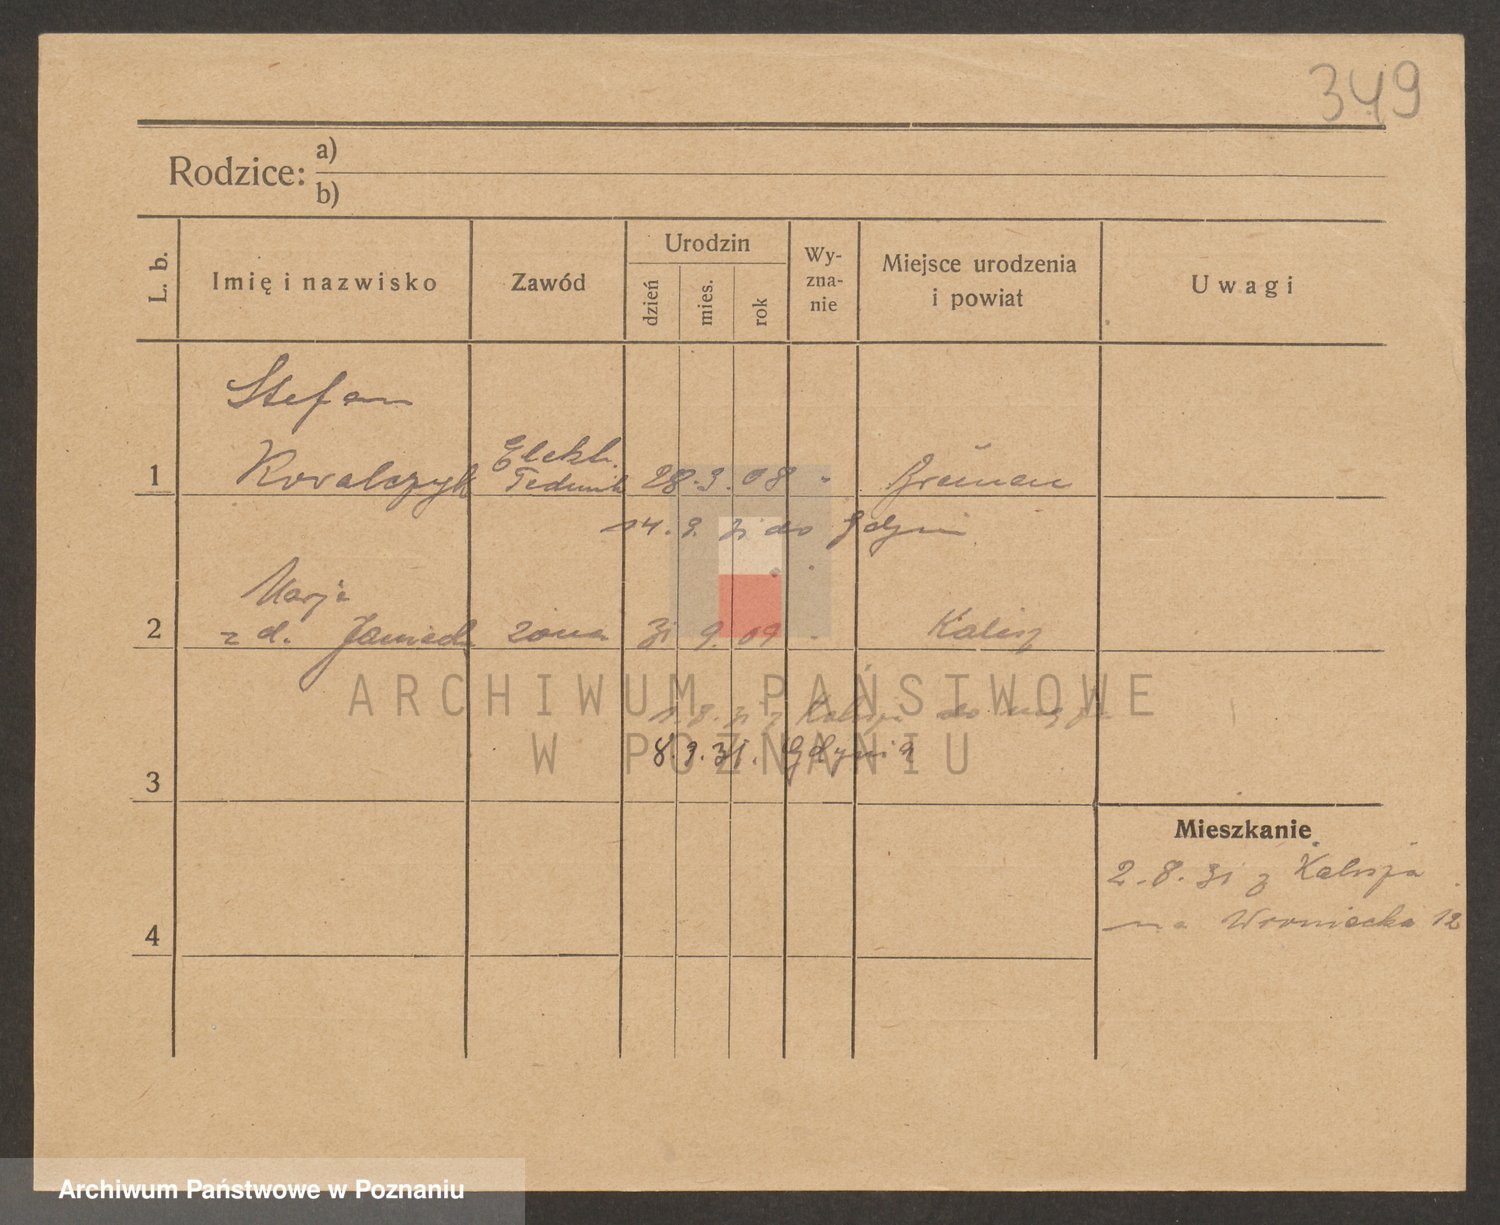 349
Rodzice: a)
b)
L. b.
Imię i nazwisko
Zawód
Urodzin
dzień
mies.
rok
Wy-
zna-
nie
Miejsce urodzenia
i powiat
Uwagi
Stefan
1 Kowalczyk Elektr. 28. 3. 08 "
14. 9. 31 do Gdyni
Marja
2 z d. żona 31 9. 09 " Kalisz
1. 8. 31 z Kalisza do męża
8. 9. 31. Gdynia
3
Mieszkanie
2. 8. 31 z Kalisza
na Wroniecka 12
4
ARCHIWUM PAŃSTWOWE
W POZNANIU
Archiwum Państwowe w Poznaniu